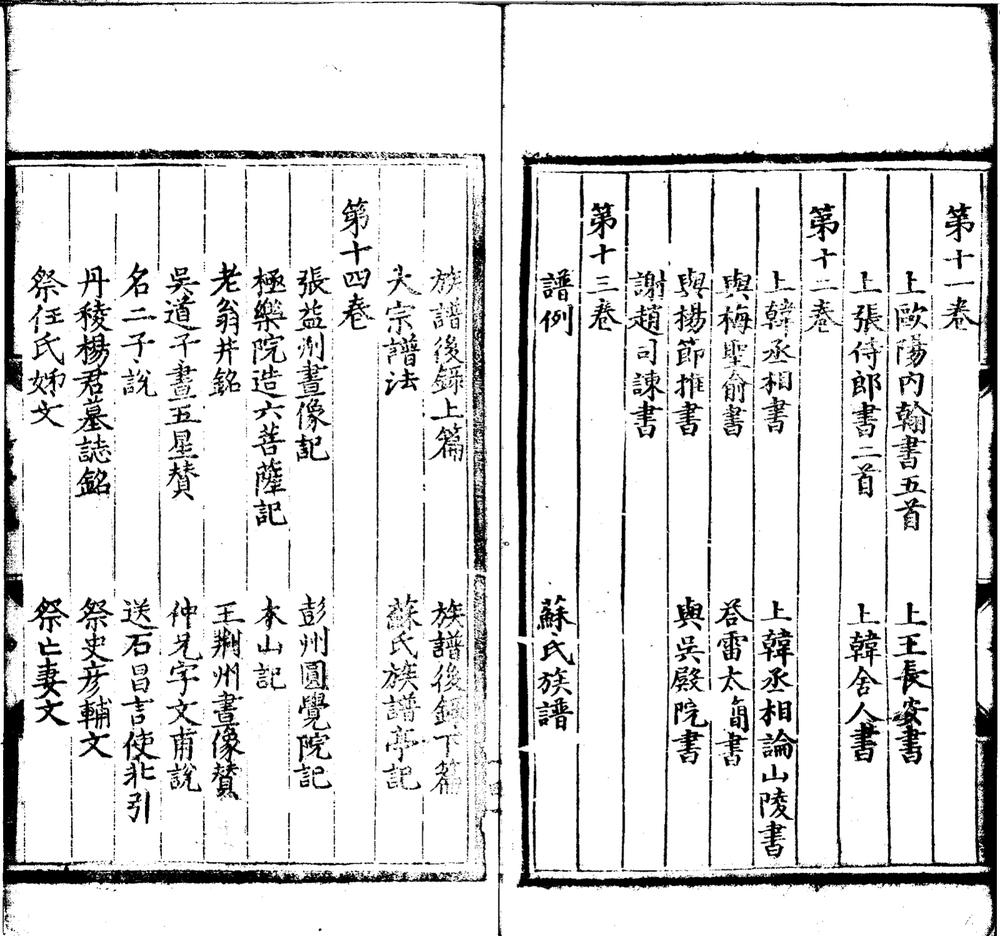 第十一卷
上歐陽內翰書五首　上王長安書
上張侍郎書二首　上韓舍人書
第十二卷
上韓丞相書　上韓丞相論山陵書
與梅聖俞書　荅雷太簡書
與楊節推書　與吳殿院書
謝趙司諫書
第十三卷
譜例　蘇氏族譜
族譜後錄上篇　族譜後錄下篇
大宗譜法　蘇氏族譜亭記
第十四卷
張益州畫像記　彭州圓覺院記
極樂院造六菩薩記　木山記
老翁井銘　王荊州畫像贊
吳道子畫五星贊　仲兄字文甫說
名二子說　送石昌言使北引
丹稜楊君墓誌銘　祭史彥輔文
祭任氏姊文　祭亡妻文